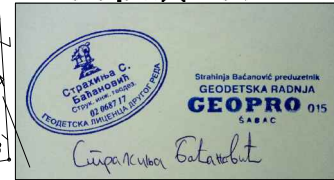 Страхиња С.
Баћановић
Струк. инж. геодез.
02 0687 17
ГЕОДЕТСКА ЛИЦЕНЦА ДРУГОГ РЕДА
Strahinja Baćanović preduzetnik
GEODETSKA RADNJA
GEOPRO 015
ŠABAC
Страхиња Баћановић